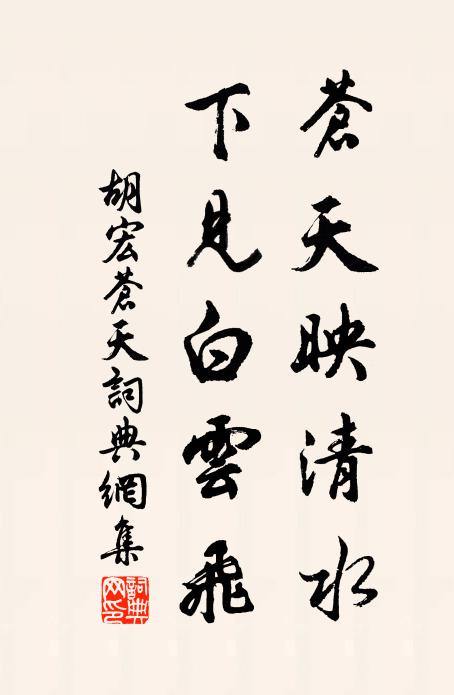 蒼天映清水
下見白雲飛
胡宏蒼天詞典網集
詞典網印